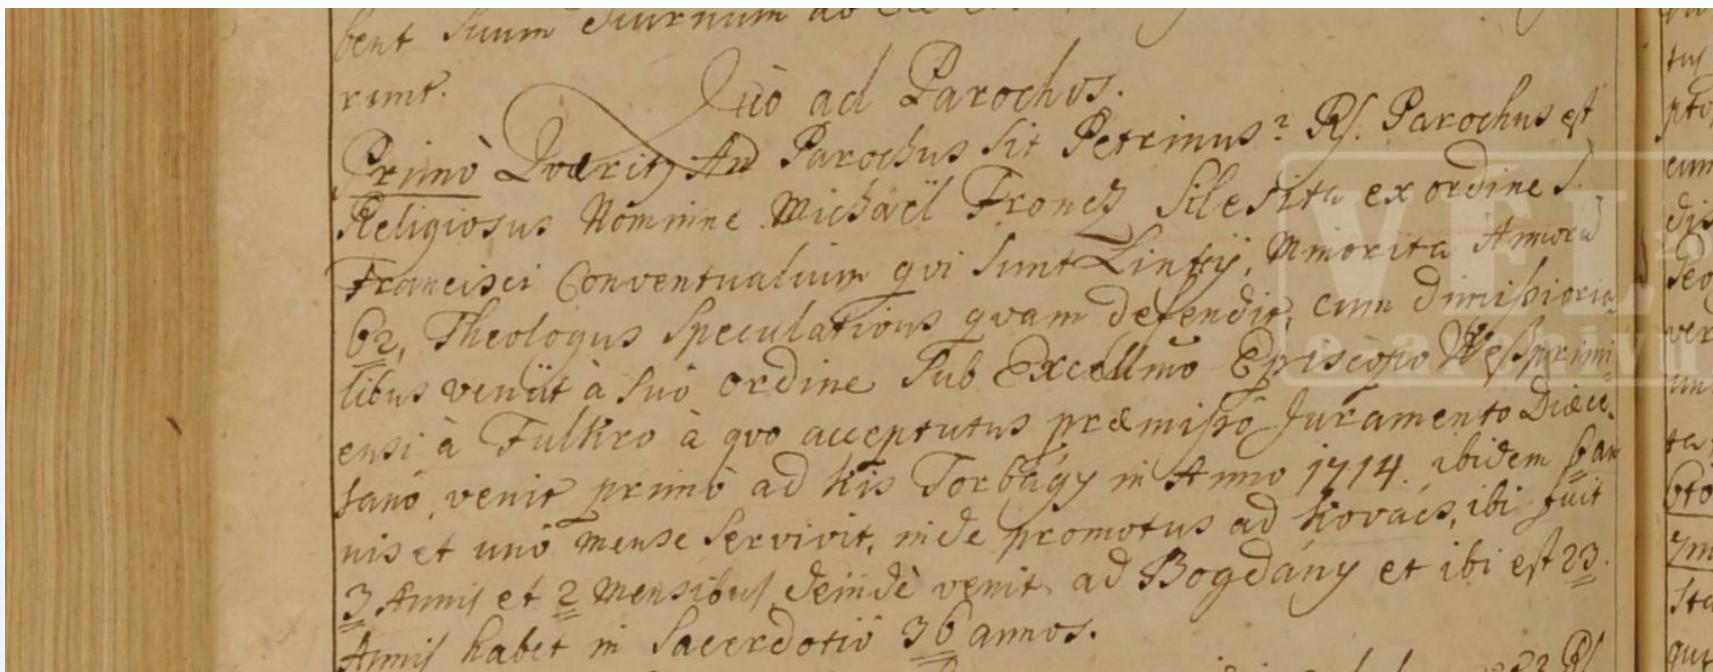 bent suum diurnum ad
runt.
Quò ad Parochos.
Primò Qværitz An Parochus sit Petrinus? Rs. Parochus est
Religiosus Nomine Michaël Froncz Silesita ex ordine S.
Francisci Conventualium qvi sunt Lintzij, Minorita Annorū
62, Theologus Speculativus qvam defendit, cum dimissioria-
libus venüt à suo ordine sub Excellmō Episcopo Wessprimi-
ensi à Fulkro à qvo acceptutus præmisso Juramento Diæce-
sano, venit primò ad Kis Torbágy in Anno 1714. ibidem 6 an
nis et unō mense servivit, inde promotus ad Kovács, ibi fuit
3 Annis et 2 mensibus deindè venit ad Bogdány et ibi est 23.
Annis habet in sacerdotiō 36 annos.